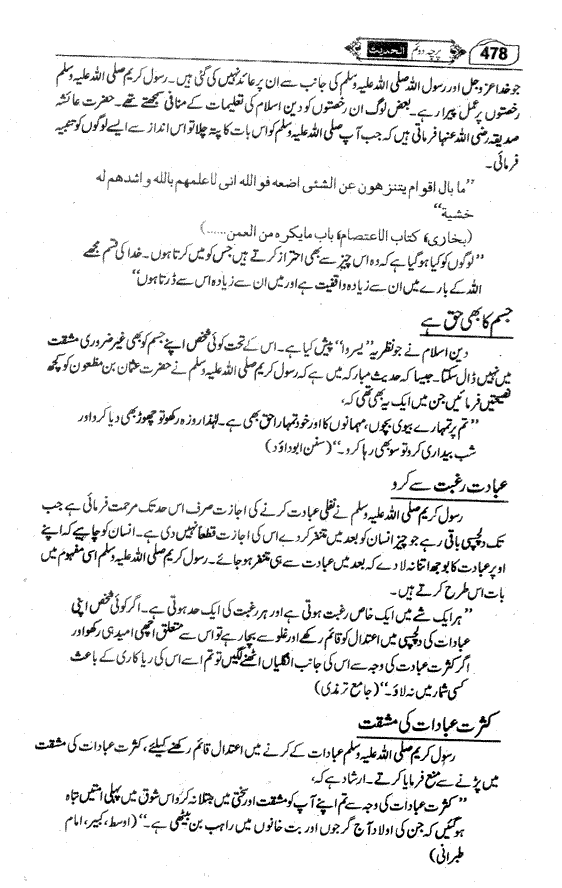 478
پرچہ دوئم الحدیث
جو خدا عز و جل اور رسول اللہ صلی اللہ علیہ وسلم کی جانب سے ان پر عائد نہیں کی گئی ہیں۔ رسول کریم صلی اللہ علیہ وسلم
رخصتوں پر عمل پیرا رہے۔ بعض لوگ ان رخصتوں کو دین اسلام کی تعلیمات کے منافی سمجھتے تھے۔ حضرت عائشہ
صدیقہ رضی اللہ عنہا فرماتی ہیں کہ جب آپ صلی اللہ علیہ وسلم کو اس بات کا پتہ چلا تو اس انداز سے ایسے لوگوں کو تنبیہ
فرمائی۔
”ما بال اقوام یتنزھون عن الشئی اضعه فو اللہ انی لا علمھم باللہ و اشدھم له
خشیة“
(بخاری، کتاب الاعتصام، باب مایکرہ من العمن......)
”لوگوں کو کیا ہو گیا ہے کہ وہ اس چیز سے بھی احتراز کرتے ہیں جس کو میں کرتا ہوں۔ خدا کی قسم مجھے
اللہ کے بارے میں ان سے زیادہ واقفیت ہے اور میں ان سے زیادہ اس سے ڈرتا ہوں“
جسم کا بھی حق ہے
دین اسلام نے جو نظریہ ”یسروا“ پیش کیا ہے۔ اس کے تحت کوئی شخص اپنے جسم کو بھی غیر ضروری مشقت
میں نہیں ڈال سکتا۔ جیسا کہ حدیث مبارکہ میں ہے کہ رسول کریم صلی اللہ علیہ وسلم نے حضرت عثمان بن مظعون کو کچھ
نصیحتیں فرمائیں جن میں ایک یہ بھی تھی کہ،
”تم پر تمہارے بیوی بچوں، مہمانوں کا اور خود تمہارا حق بھی ہے۔ لہٰذا روزہ رکھو تو چھوڑ بھی دیا کرو اور
شب بیداری کرو تو سو بھی رہا کرو۔“ (سنن ابوداؤد)
عبادت رغبت سے کرو
رسول کریم صلی اللہ علیہ وسلم نے نفلی عبادت کرنے کی اجازت صرف اس حد تک مرحمت فرمائی ہے جب
تک دلچسپی باقی رہے جو چیز انسان کو بعد میں متنفر کر دے اس کی اجازت قطعاً نہیں دی ہے۔ انسان کو چاہیے کہ اپنے
اوپر عبادت کا بوجھ اتنا نہ لا دے کہ بعد میں عبادت سے ہی متنفر ہو جائے۔ رسول کریم صلی اللہ علیہ وسلم اسی مفہوم میں
بات اس طرح کرتے ہیں۔
”ہر ایک شے میں ایک خاص رغبت ہوتی ہے اور ہر رغبت کی ایک حد ہوتی ہے۔ اگر کوئی شخص اپنی
عبادات کی دلچسپی میں اعتدال کو قائم رکھے اور غلو سے بچا رہے تو اس سے متعلق اچھی امید ہی رکھو اور
اگر کثرت عبادت کی وجہ سے اس کی جانب انگلیاں اٹھنے لگیں تو تم اسے اس کی ریاکاری کے باعث
کسی شمار میں نہ لاؤ۔“ (جامع ترمذی)
کثرت عبادات کی مشقت
رسول کریم صلی اللہ علیہ وسلم عبادات کے کرنے میں اعتدال قائم رکھنے کیلئے، کثرت عبادات کی مشقت
میں پڑنے سے منع فرمایا کرتے۔ ارشاد ہے کہ،
”کثرت عبادات کی وجہ سے تم اپنے آپ کو مشقت اور سختی میں مبتلا نہ کرو اس شوق میں پہلی امتیں تباہ
ہو گئیں کہ جن کی اولاد آج گرجوں اور بت خانوں میں راہب بن بیٹھی ہے۔“ (اوسط، کبیر، امام
طبرانی)